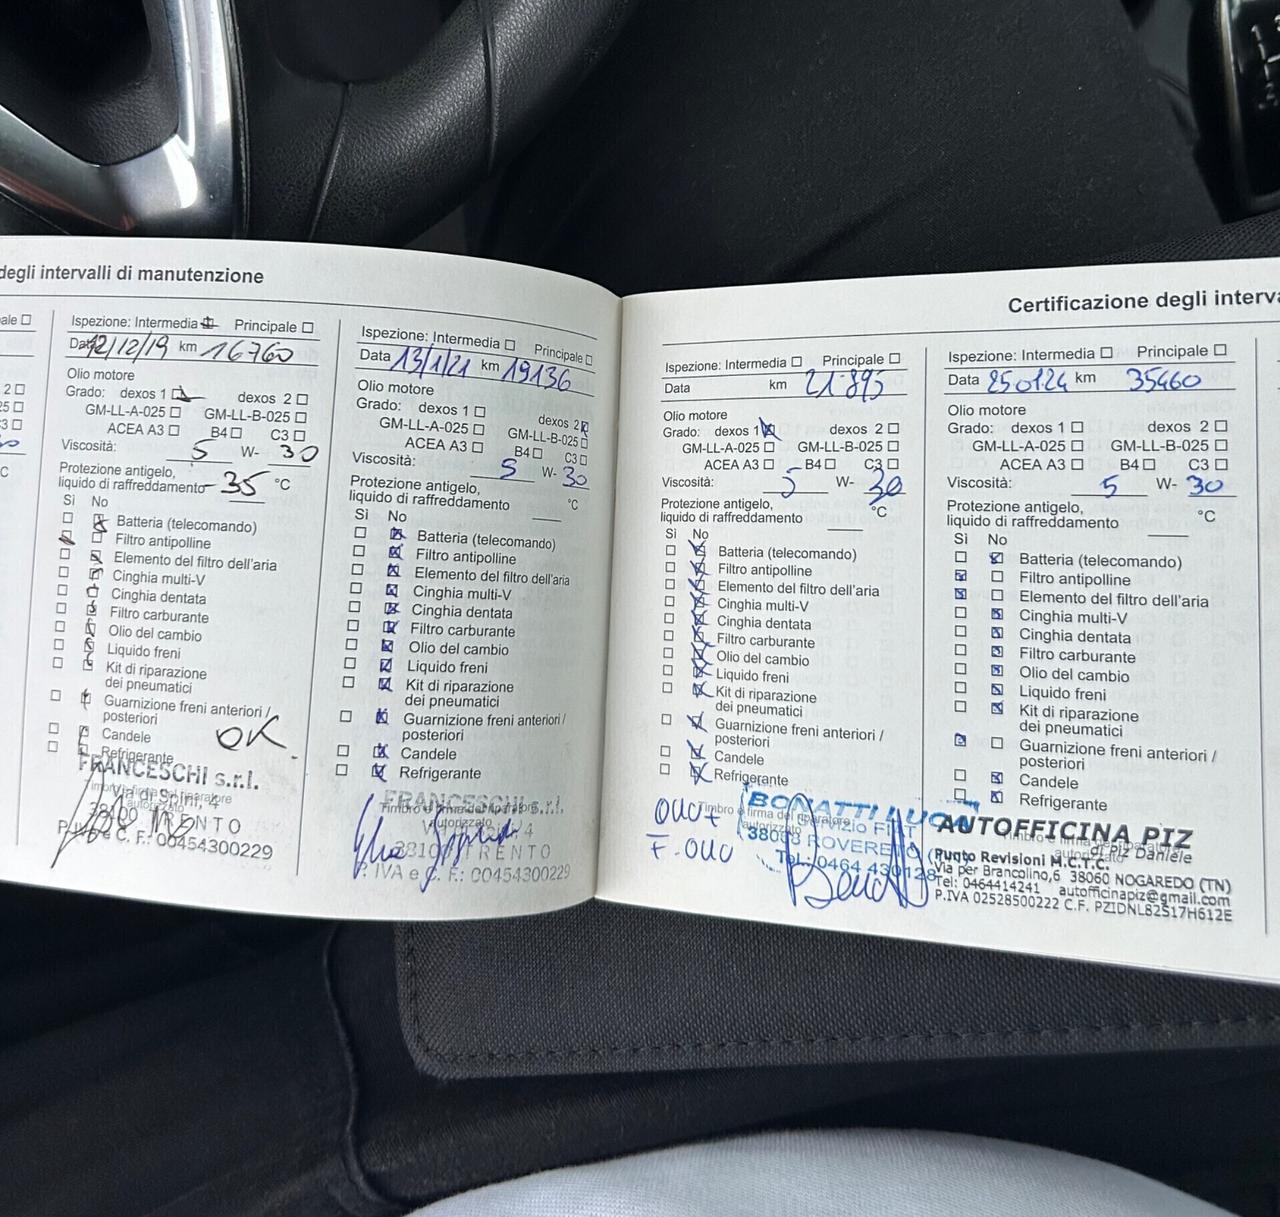 degli intervalli di manutenzione
ale
2
25
C3
°C
Ispezione: Intermedia Principale
Data 12/12/19 km 16760
Olio motore
Grado: dexos 1 dexos 2
GM-LL-A-025 GM-LL-B-025
ACEA A3 B4 C3
Viscosità: 5 W- 30
Protezione antigelo,
liquido di raffreddamento -35 °C
Sì No
Batteria (telecomando)
Filtro antipolline
Elemento del filtro dell'aria
Cinghia multi-V
Cinghia dentata
Filtro carburante
Olio del cambio
Liquido freni
Kit di riparazione
dei pneumatici
Guarnizione freni anteriori /
posteriori
Candele OK
Refrigerante
FRANCESCHI s.r.l.
Via di Spini, 4
TRENTO
P. IVA e C. F.: 00454300229
Ispezione: Intermedia Principale
Data 13/1/21 km 19136
Olio motore
Grado: dexos 1 dexos 2
GM-LL-A-025 GM-LL-B-025
ACEA A3 B4 C3
Viscosità: 5 W- 30
Protezione antigelo,
liquido di raffreddamento °C
Sì No
Batteria (telecomando)
Filtro antipolline
Elemento del filtro dell'aria
Cinghia multi-V
Cinghia dentata
Filtro carburante
Olio del cambio
Liquido freni
Kit di riparazione
dei pneumatici
Guarnizione freni anteriori /
posteriori
Candele
Refrigerante
FRANCESCHI s.r.l.
Timbro e firma del riparatore
autorizzato
4
TRENTO
P. IVA e C. F.: 00454300229
Certificazione degli interva
Ispezione: Intermedia Principale
Data km 21895
Olio motore
Grado: dexos 1 dexos 2
GM-LL-A-025 GM-LL-B-025
ACEA A3 B4 C3
Viscosità: 5 W- 30
Protezione antigelo,
liquido di raffreddamento °C
Sì No
Batteria (telecomando)
Filtro antipolline
Elemento del filtro dell'aria
Cinghia multi-V
Cinghia dentata
Filtro carburante
Olio del cambio
Liquido freni
Kit di riparazione
dei pneumatici
Guarnizione freni anteriori /
posteriori
Candele
Refrigerante
Timbro e firma del riparatore
autorizzato
BONATTI LUCA
Servizio FIAT
38068 ROVERETO
Tel. 0464 430128
Ispezione: Intermedia Principale
Data 250124 km 35460
Olio motore
Grado: dexos 1 dexos 2
GM-LL-A-025 GM-LL-B-025
ACEA A3 B4 C3
Viscosità: 5 W- 30
Protezione antigelo,
liquido di raffreddamento °C
Sì No
Batteria (telecomando)
Filtro antipolline
Elemento del filtro dell'aria
Cinghia multi-V
Cinghia dentata
Filtro carburante
Olio del cambio
Liquido freni
Kit di riparazione
dei pneumatici
Guarnizione freni anteriori /
posteriori
Candele
Refrigerante
AUTOFFICINA PIZ
di Piz Daniele
Punto Revisioni M.C.T.C.
Via per Brancolino,6 38060 NOGAREDO (TN)
Tel: 0464414241 autofficinapiz@gmail.com
P.IVA 02528500222 C.F. PZIDNL82S17H612E